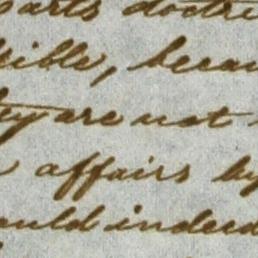 parts doctri
sible, becau
they are not
affairs by
ould indeed